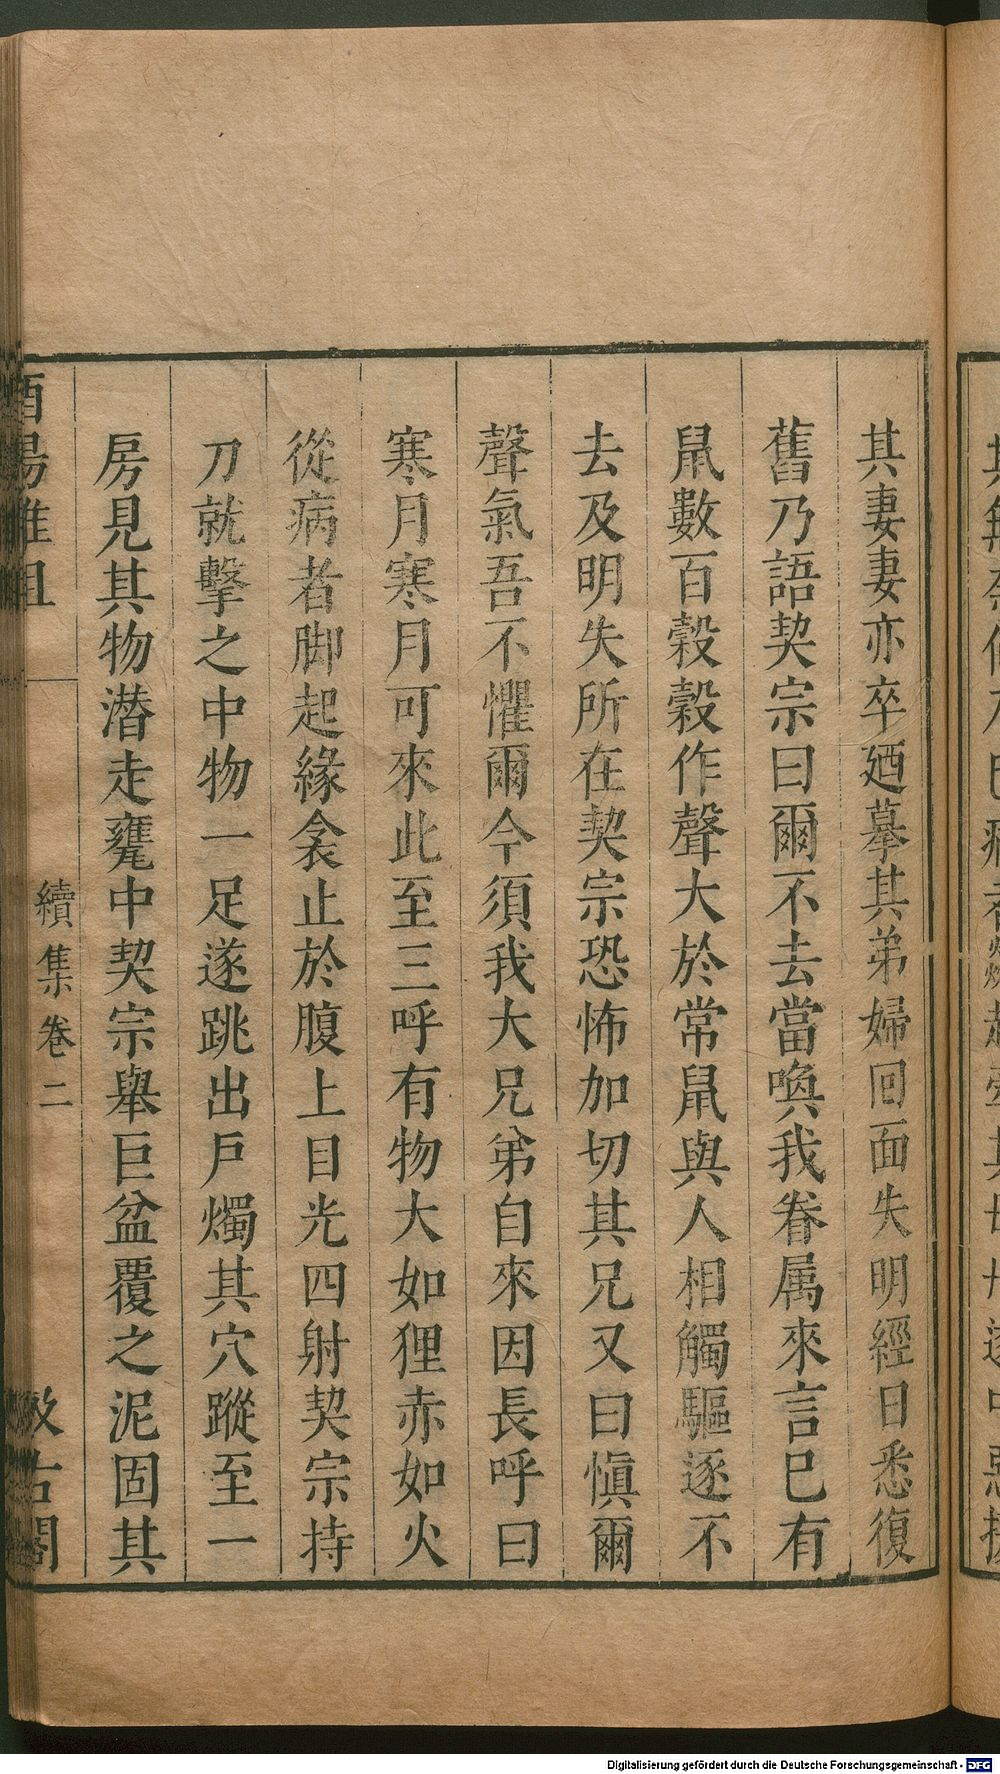 其妻妻亦卒廼摹其弟婦回面失明經日悉復
舊乃語契宗曰爾不去當喚我眷属來言巳有
鼠數百榖榖作聲大於常鼠與人相觸驅逐不
去及明失所在契宗恐怖加切其兄又曰愼爾
聲氣吾不懼爾今須我大兄弟自來因長呼曰
寒月寒月可來此至三呼有物大如狸赤如火
從病者脚起緣衾止於腹上目光四射契宗持
刀就擊之中物一足遂跳出戶燭其穴蹤至一
房見其物潜走甕中契宗舉巨盆覆之泥固其
酉陽雜俎
續集卷二
汲古閣
Digitalisierung gefördert durch die Deutsche Forschungsgemeinschaft - DFG